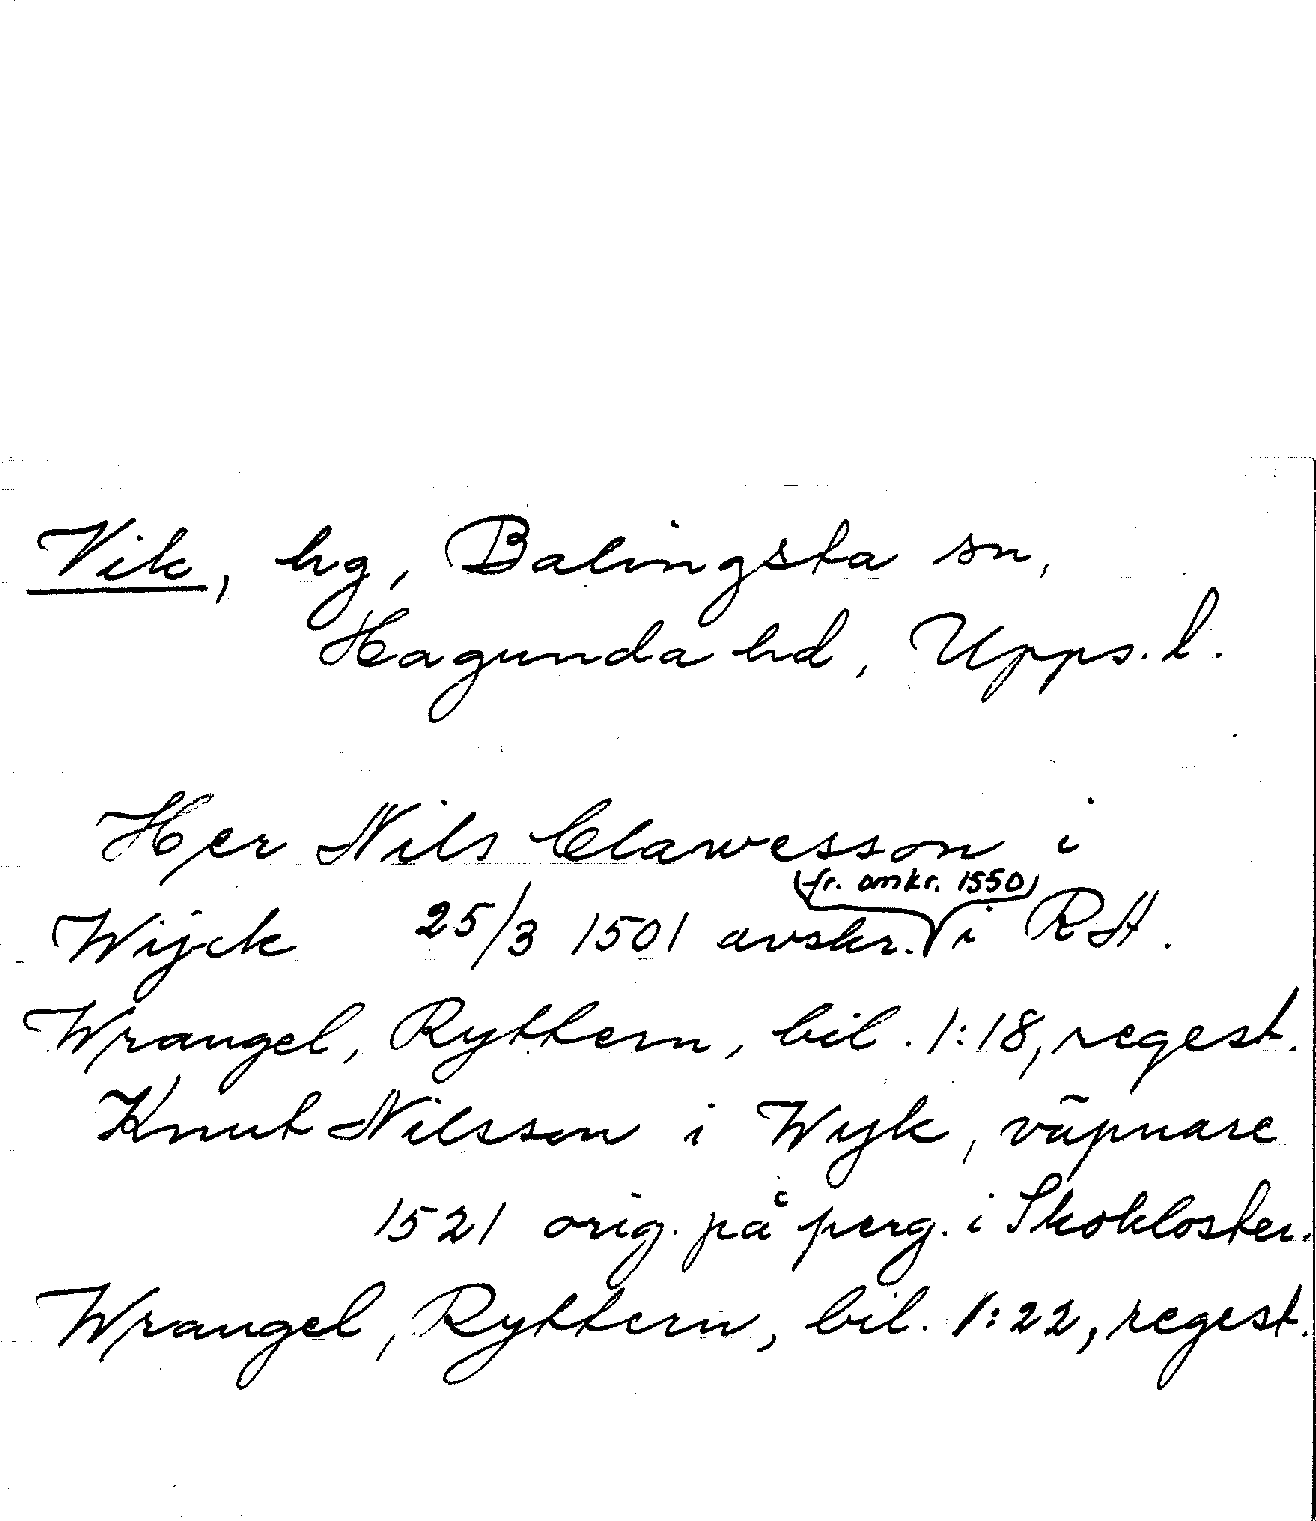 Vik, hg, Balingsta sn,
Hagunda hd, Upps. l.
Her Nils Clawesson i
(fr. omkr. 1550)
Wijck 25/3 1501 avskr. i RA.
Wrangel, Ryttern, bil. 1:18, regest.
Knut Nilsson i Wyk, väpnare
1521 orig. på perg. i Skokloster.
Wrangel, Ryttern, bil. 1:22, regest.